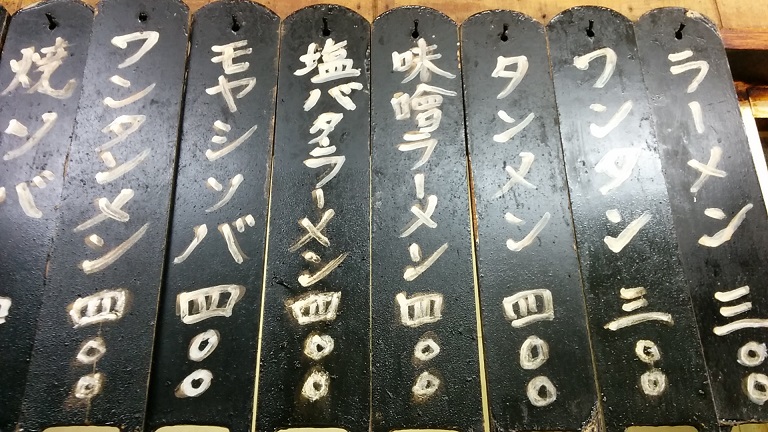 ラーメン 三〇〇
ワンタン 三〇〇
タンメン 四〇〇
味噌ラーメン 四〇〇
塩バターラーメン 四〇〇
モヤシソバ 四〇〇
ワンタンメン 四〇〇
焼ソバ